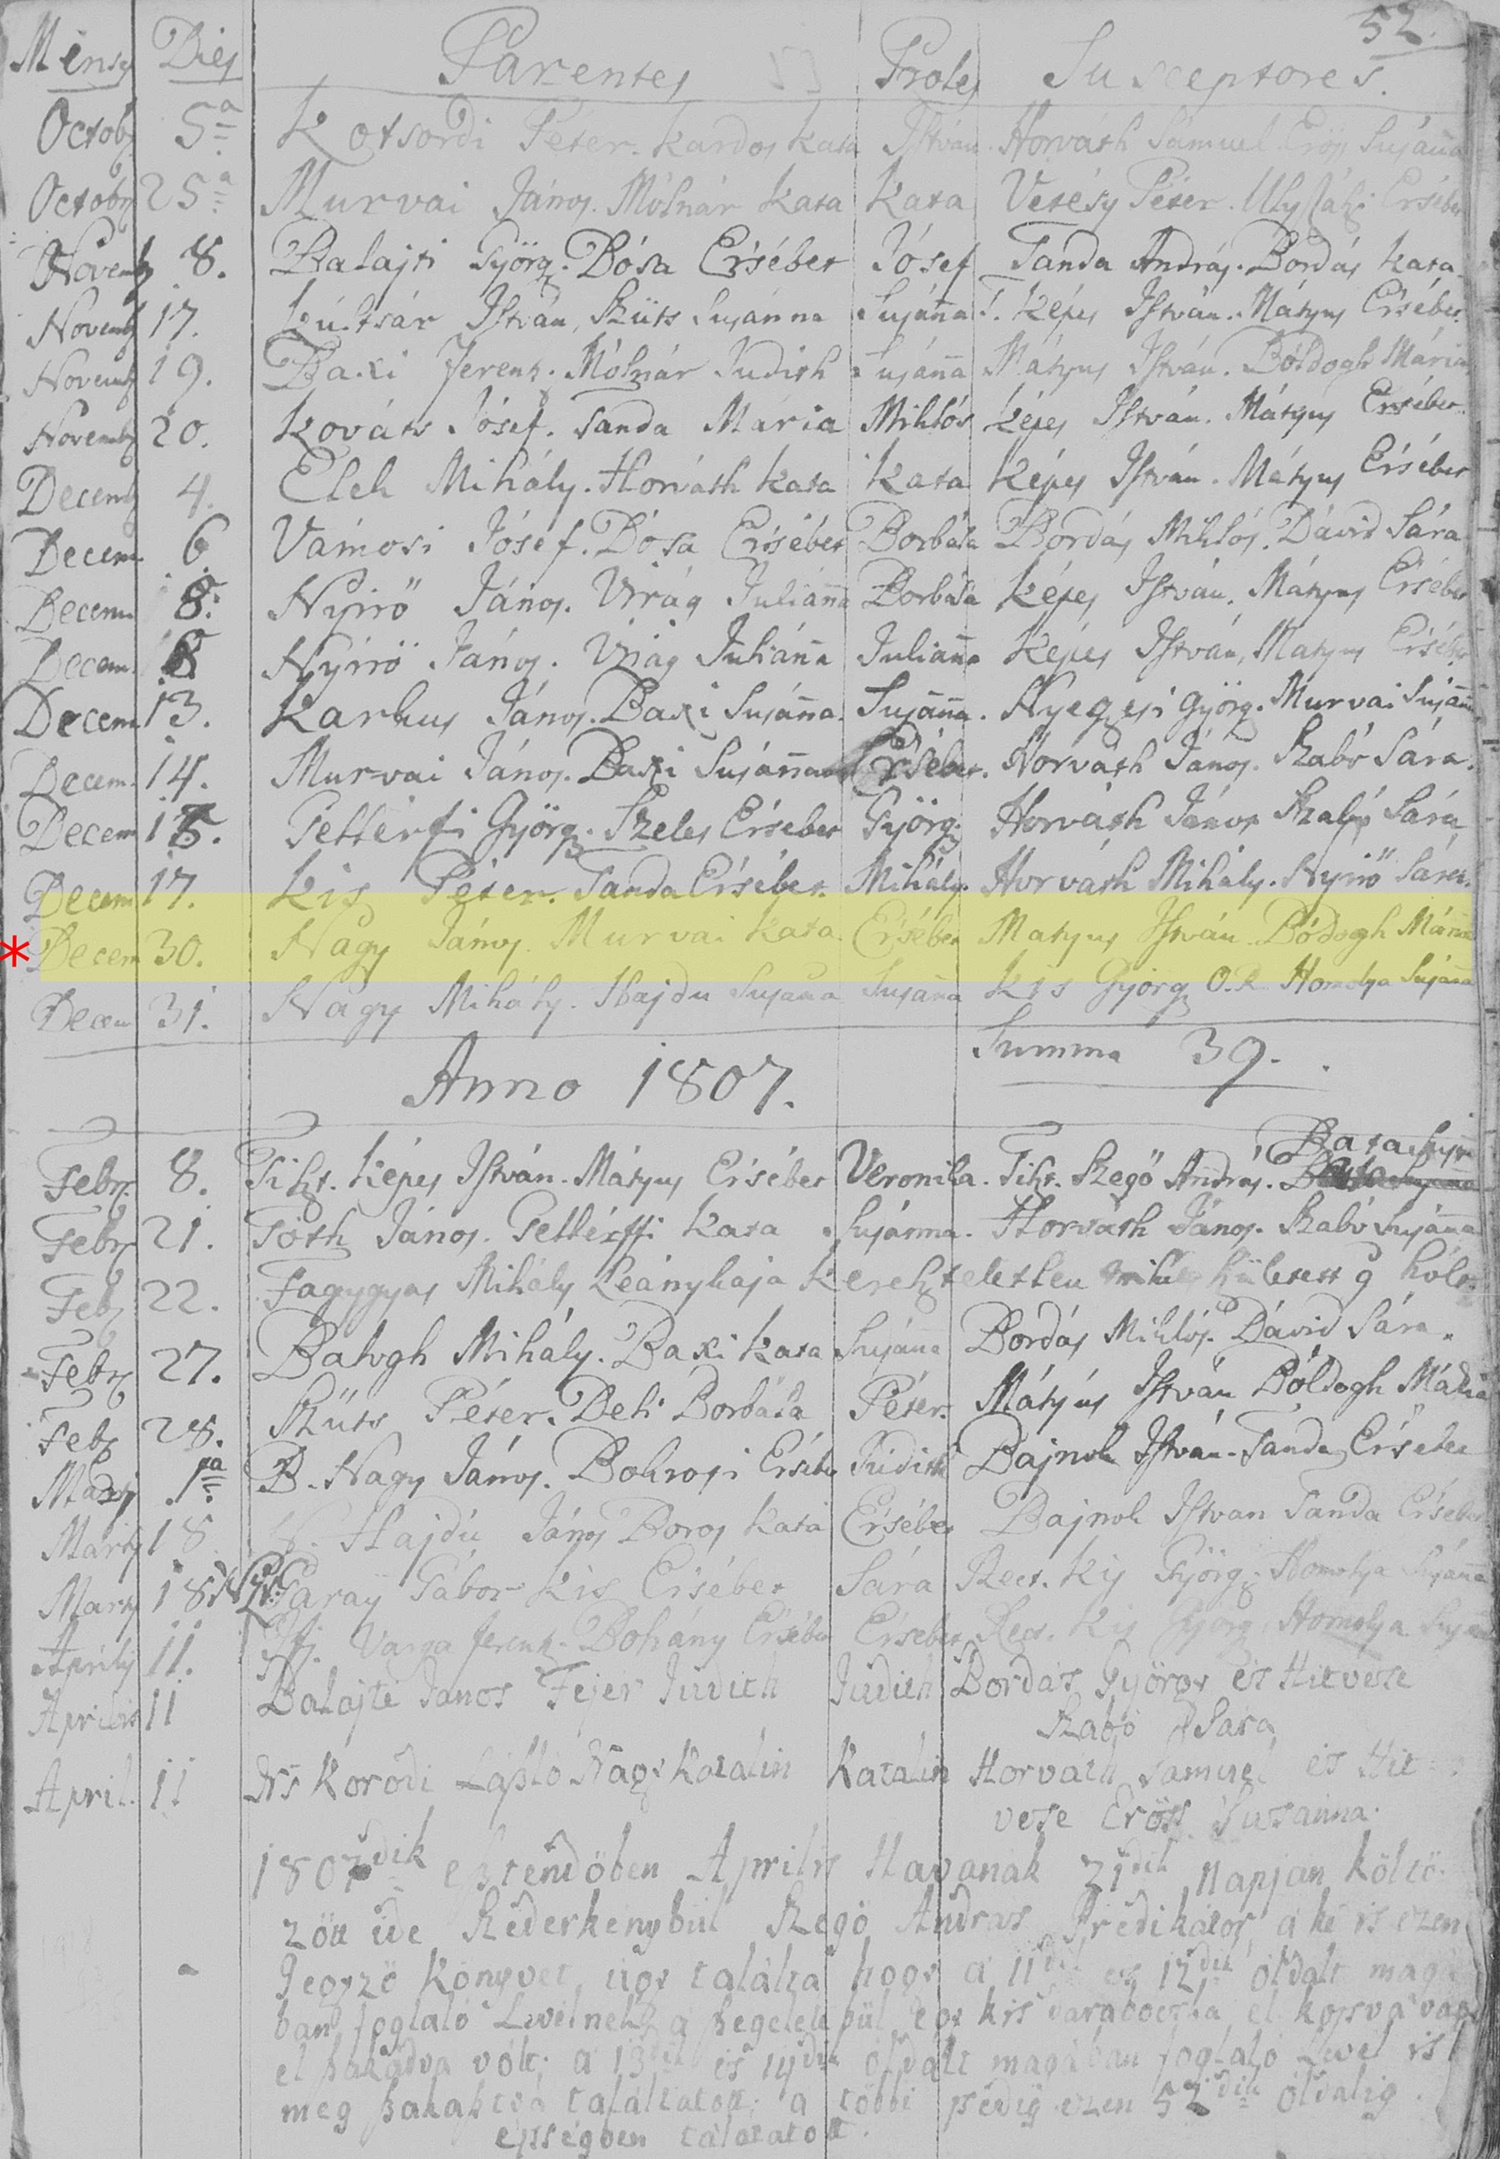 52.
Mensis Dies Parentes Proles Susceptores.
Octobr 5ª Kotsordi Péter. Kardos Kata István Horváth Sámuel Erős Susánna
Octobr 25ª Murvai János. Mólnár Kata Kata Vetésy Péter. Ersébet
Novemb 8. Balajti Györg. Dósa Ersébet Jósef Tanda András. Bordás Kata.
Novemb 17. István, Szüts Susánna Susánna T. Képes István. Mátyus Ersébet.
Novemb 19. Baxi Ferentz. Mólnár Judith Susánna Mátyus István. Bóldogh Mária
Novemb 20. Kováts Jósef. Tanda Mária Miklós Képes István. Mátyus Ersébet.
Decemb 4. Elek Mihály. Horváth Kata Kata Képes István. Mátyus Ersébet
Decem 6 Vámosi Jósef. Dósa Ersébet Borbála Bordás Miklós. Dávid Sára
Decem 8. Nyirő János. Virág Juliánna Borbála Képes István. Mátyus Ersébet
Decem. 8 Nyirő János. Virág Juliánna Juliánna Képes István, Mátyus Ersébet
Decem 13. Karkus János. Baxi Susánna. Susánna. Nyegesi Györg. Murvai Susánna
Decem. 14. Murvai János. Baxi Susánna Ersébet. Horváth János. Szabó Sára.
Decem 15. Petterfi Györg. Szeles Ersébet Györg. Horváth János Szabó Sára
Decem 17. Kis Péter. Tanda Ersébet. Mihály. Horváth Mihály. Nyirő Sára.
* Decem 30. Nagy János. Murvai Kata. Ersébet Matyus István. Bódogh Mária
Decem 31. Nagy Mihály. Hajdu Susana Susána Kis Györg O.R. Homolya Susánna
Summa 39.
Anno 1807.
Febr. 8. Tiszt. Képes István. Mátyus Ersébet Veronika. Tiszt. Szegő András.
Febr 21. Tóth János. Petterffi Kata Susánna. Horváth János. Szabó Susánna
Feb 22. Fagygyas Mihály Leánykája Kereszteletlen
Febr 27. Balogh Mihály. Baxi Kata Susána Bordás Miklós. Dávid Sára.
Feb 28. Szüts Péter. Deli Borbála Péter. Mátyus István Bóldogh Mária
Martz 1ª B. Nagy János. Bokrosi Ersébe Judith Bajnok István. Tanda Ersébet
Martz 18 Hajdú János Boros Kata Ersébet Bajnok Istvan Tanda Ersébet
Martz 18 Garay Gábor Kis Ersébet Sára Rect. Kis Györg. Homolya Susánna
Aprily 11. Ifj. Varga Ferentz. Bohány Ersébe Ersébet Rect. Kis Györg, Homolya Susánna
Aprilis 11 Balajti Janos Fejer Judith Judith Bordás György és Hitvese
Szabó Sara
April. 11 Ns Korodi László Nagy Katalin Katalin Horvath Samuel és Hit-
vese Eröss Susanna.
1807dik esztendőben Aprilis Havanak 21dik napjan költö-
zött ide Szederkénybül Szegő Andras Prédikátor, a ki is ezen
Jegyző Könyvet, úgy találta hogy a 11dik és 12dik óldalt magá-
ban foglaló Levélnek a szegeletébül egy kis darabotska el
el szakadva vólt; a 13dik és 14dik óldalt magában foglaló Levél is
meg szakasztva találtatott; a többi pedig ezen 52dik óldalig
épségben találtatott.